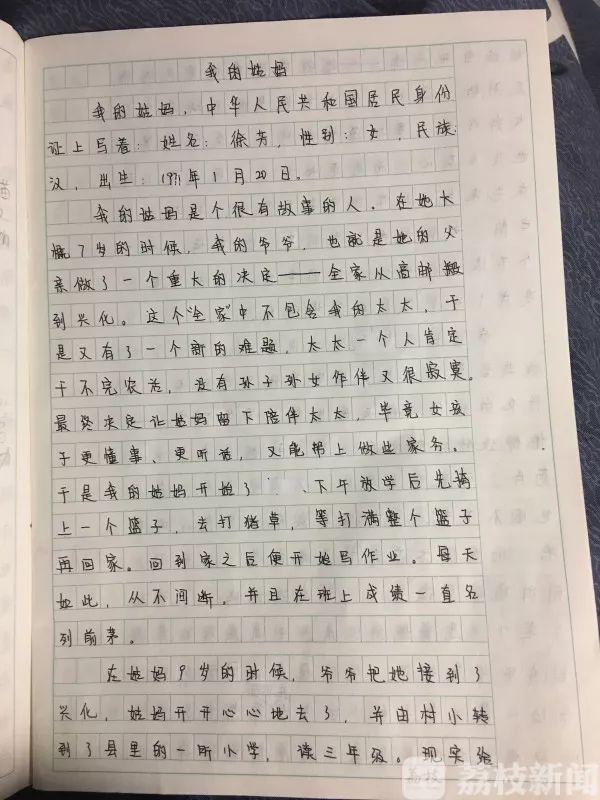 我的姑妈
我的姑妈，中华人民共和国居民身份
证上写着：姓名：徐芳，性别：女，民族：
汉，出生：1971年1月20日。
我的姑妈是个很有故事的人。在她大
概7岁的时候，我的爷爷，也就是她的父
亲做了一个重大的决定——全家从高邮搬
到兴化。这个“全家”中不包含我的太太，于
是又有了一个新的难题，太太一个人肯定
干不完农活，没有孙子孙女作伴又很寂寞。
最终决定让姑妈留下陪伴太太，毕竟女孩
子更懂事、更听话，又能帮上做些家务。
于是我的姑妈开始了 下午放学后先骑
上一个篮子，去打猪草，等打满整个篮子
再回家。回到家之后便开始写作业。每天
如此，从不间断。并且在班上成绩一直名
列前茅。
在姑妈9岁的时候，爷爷把她接到了
兴化，姑妈开开心心地去了，并由村小转
到了县里的一所小学，读三年级。现实给
荔枝新闻